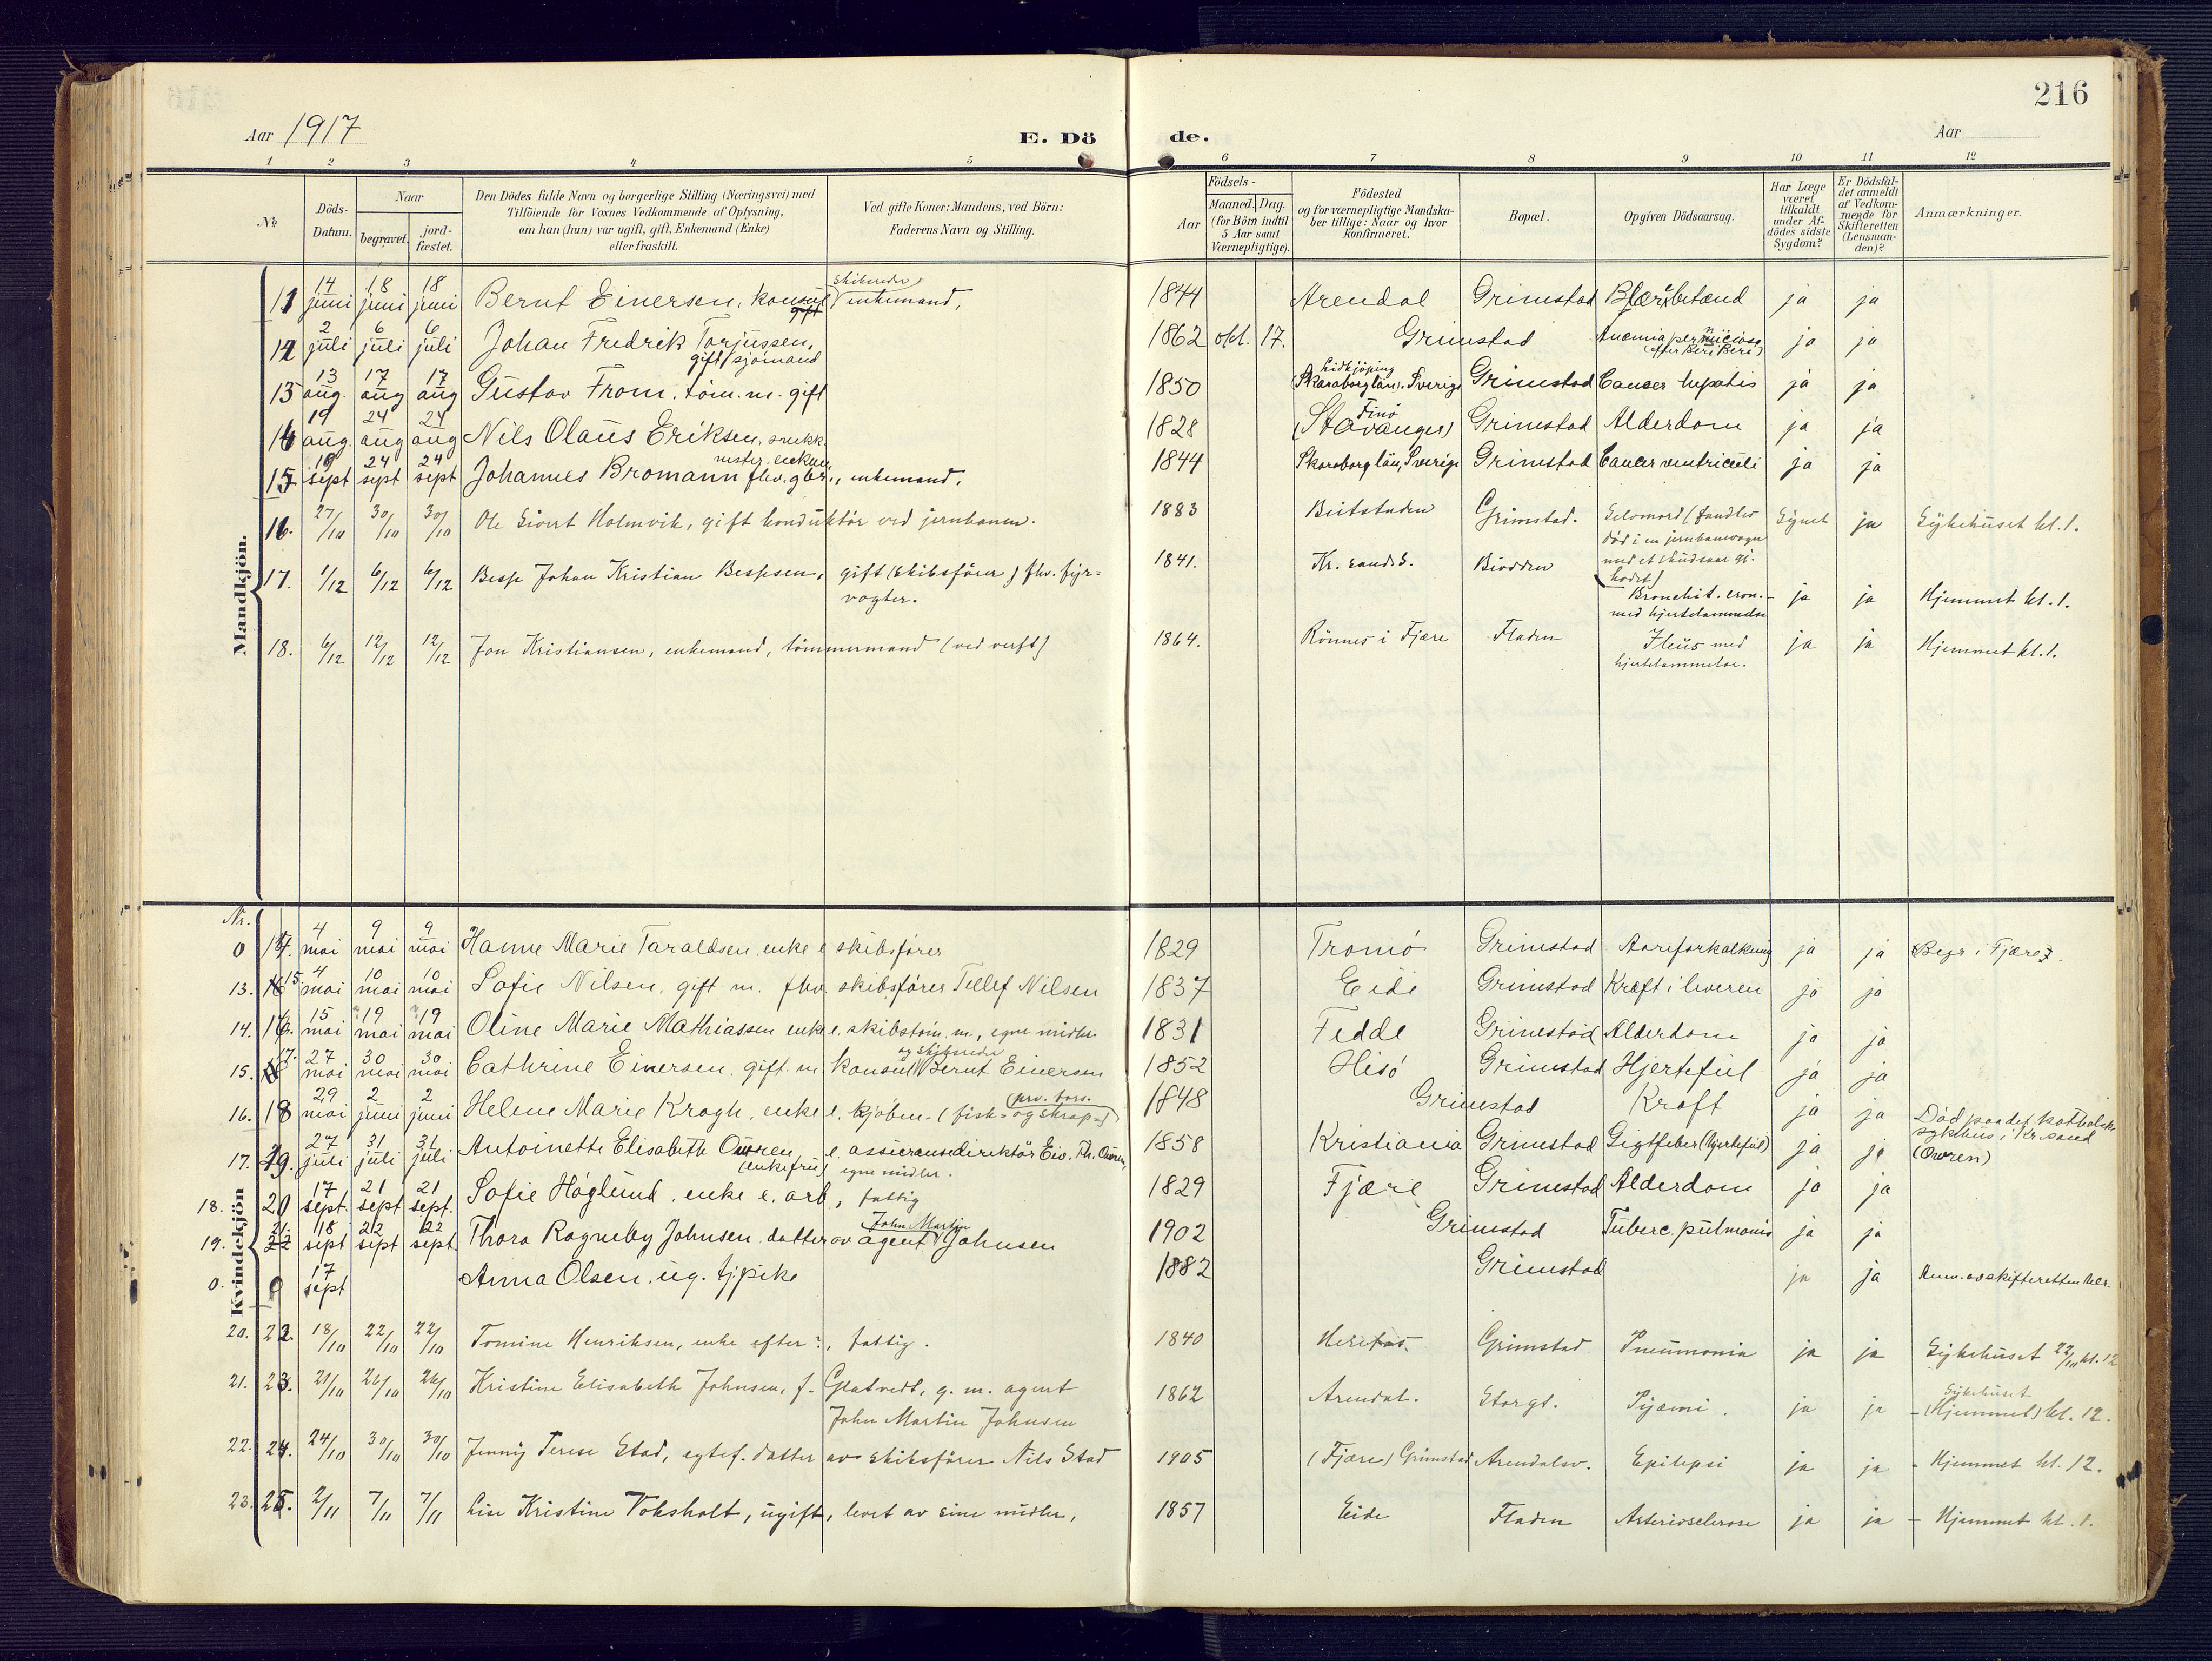 216
Aar 1917
E. Dö de.
Aar
1 2 3 4 5 6 7 8 9 10 11 12
No.
Döds-Datum.
Naar
begravet.
jord-fæstet.
Den Dödes fulde Navn og borgerlige Stilling (Næringsvei) med
Tilföiende for Voxnes Vedkommende af Oplysning,
om han (hun) var ugift, gift, Enkemand (Enke)
eller fraskilt.
Ved gifte Koner: Mandens, ved Börn:
Faderens Navn og Stilling.
Födsels-
Aar
Maaned. Dag.
(for Börn indtil
5 Aar samt
Værnepligtige).
Födested
og for værnepligtige Mandska-
ber tillige: Naar og hvor
konfirmeret.
Bopæl.
Opgiven Dödsaarsag.
Har Læge
været
tilkaldt
under Af-
dödes sidste
Sygdom?
Er Dödsfal-
det anmeldt
af Vedkom-
mende for
Skifteretten
(Lensman-
den)?
Anmærkninger.
Mandkjön.
11 14 juni 18 juni 18 juni Bernt Einersen, konsul skibsreder enkemand, 1844 Arendal Grimstad Blærebetænd ja ja
gift
12 2 juli 6 juli 6 juli Johan Fredrik Torjussen, 1862 okt. 17. Grimstad Anæmia perniciosa ja ja
gift sjömand (efter Beri Beri)
13 13 aug. 17 aug 17 aug Gustav From. töm. m. gift 1850 Lidkjöping (Skaraborg län). Sverige Grimstad Cancer hepatis ja ja
14 19 aug. 24 aug 24 aug Nils Olaus Eriksen, snekk. 1828 Finö (Stavanger) Grimstad Alderdom ja ja
mester, enkem
15 19 sept 24 sept 24 sept Johannes Bromann fhv. gbr., enkemand. 1844 Skaraborg län, Sverige Grimstad Cancer ventriculi ja ja
16. 27/10 30/10 30/10 Ole Sivert Holmvik, gift konduktör ved jernbanen. 1883 Beitstaden Grimstad. Selvmord (fandtes Synet ja Sykehuset kl. 1.
död i en jernbanevogn
med et skudsaar gj.
hodet)
17. 1/12 6/12 6/12 Besse Johan Kristian Bessesen, gift (skibsförer) fhv. fyr- 1841. Kr. sand S. Biodden Bronchit. cron. ja ja Hjemmet kl. 1.
vogter. med hjertelammelse
18. 6/12 12/12 12/12 Jon Kristiansen, enkemand, tömmermand (ved verft) 1864. Rönnes i Fjære Fladen Ileus med ja ja Hjemmet kl. 1.
hjertelammelse.
Nr.
Kvindekjön
0 14. 4 mai 9 mai 9 mai Hanne Marie Taraldsen enke e skibsförer 1829 Tromö Grimstad Aareforkalkning ja ja Begr i Fjære.
13. 15 4 mai 10 mai 10 mai Sofie Nilsen, gift m. fhv. skibsförer Tellef Nilsen 1837 Eide Grimstad Kræft i leveren ja ja
14. 16. 15 mai 19 mai 19 mai Oline Marie Mathiassen enke e. skibstöm. m., egne midler 1831 Fedde Grimstad Alderdom ja ja
15. 17. 27 mai 30 mai 30 mai Cathrine Einersen. gift. m konsul og skibsreder Bernt Einersen 1852 Hisö Grimstad Hjertefeil ja ja
16. 18 29 mai 2 juni 2 juni Helene Marie Krogh. enke e. kjöbm. (fisk- og skrap-) priv. fors. 1848 Grimstad Kræft ja ja
17. 19. 27 juli 31 juli 31 juli Antoinette Elisabeth Owren e. assuransedirektör Eiv. Th. Owren, 1858 Kristiania Grimstad Gigtfeber (hjertefeil) ja ja Död paa det katholske sykehus i Kr.sand (Owren)
(enkefru) egne midler.
18. 20 17 sept. 21 sept 21 sept. Sofie Höglund. enke e. arb, fattig 1829 Fjære Grimstad Alderdom ja ja
19. 21. 18 sept 22 sept 22 sept Thora Ragneby Johnsen. datter av agent John Martin Johnsen 1902 Grimstad Tuberc. pulmonis ja ja
0. 0 17 sept Anna Olsen. ug. tjpike 1882 Grimstad ja ja
20. 22. 18/10 22/10 22/10 Tomine Henriksen, enke efter ?, fattig. 1840 Grimstad Pneumonia ja ja Sykehuset 22/10 kl. 12
21. 23. 21/10 26/10 26/10 Kristine Elisabeth Johnsen, f. Glatvedt, g. m. agent 1862 Arendal. Storgt. Pyæmi. ja ja Sykehuset (Hjemmet) kl. 12.
John Martin Johnsen
22. 24. 24/10 30/10 30/10 Jenny Terese Stad, egtef. datter av skibsförer Nils Stad 1905 (Fjære) Grimstad Arendalsv. Epilepsi ja ja - Hjemmet kl. 12.
23. 25. 2/11 7/11 7/11 Lise Kristine Voksholt, ugift, levet av sine midler, 1857 Eide Fladen Arteriosclerose ja ja - Hjemmet kl. 1.